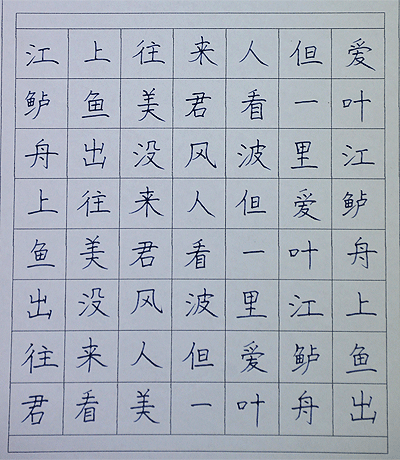 江上往来人但爱
鲈鱼美君看一叶
舟出没风波里江
上往来人但爱鲈
鱼美君看一叶舟
出没风波里江上
往来人但爱鲈鱼
君看美一叶舟出